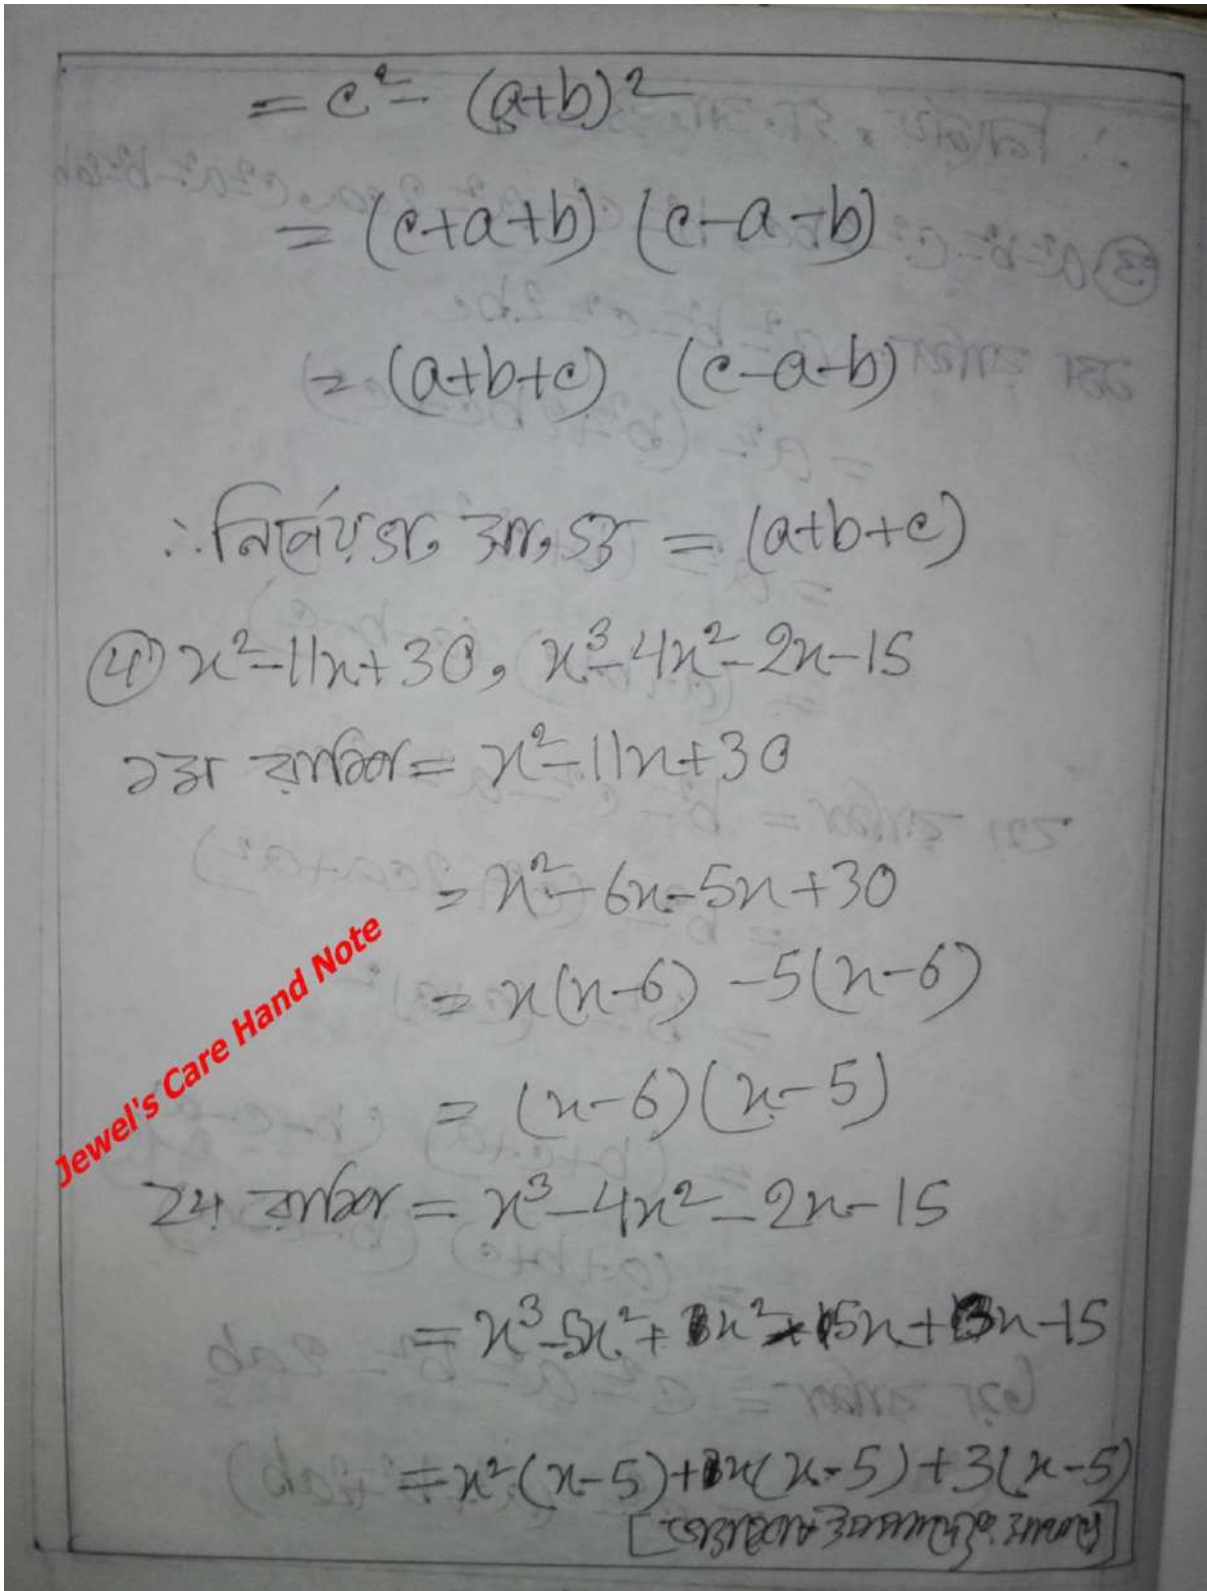 = c² - (a+b)²
= (c+a+b) (c-a-b)
= (a+b+c) (c-a-b)
∴ নির্ণেয় গ, সা, গু = (a+b+c)
④ x²-11x+30, x³-4x²-2x-15
১ম রাশি = x²-11x+30
= x²-6x-5x+30
= x(x-6) -5(x-6)
= (x-6)(x-5)
Jewel's Care Hand Note
২য় রাশি = x³-4x²-2x-15
= x³-5x²+x²-5x+3x-15
= x²(x-5)+x(x-5)+3(x-5)